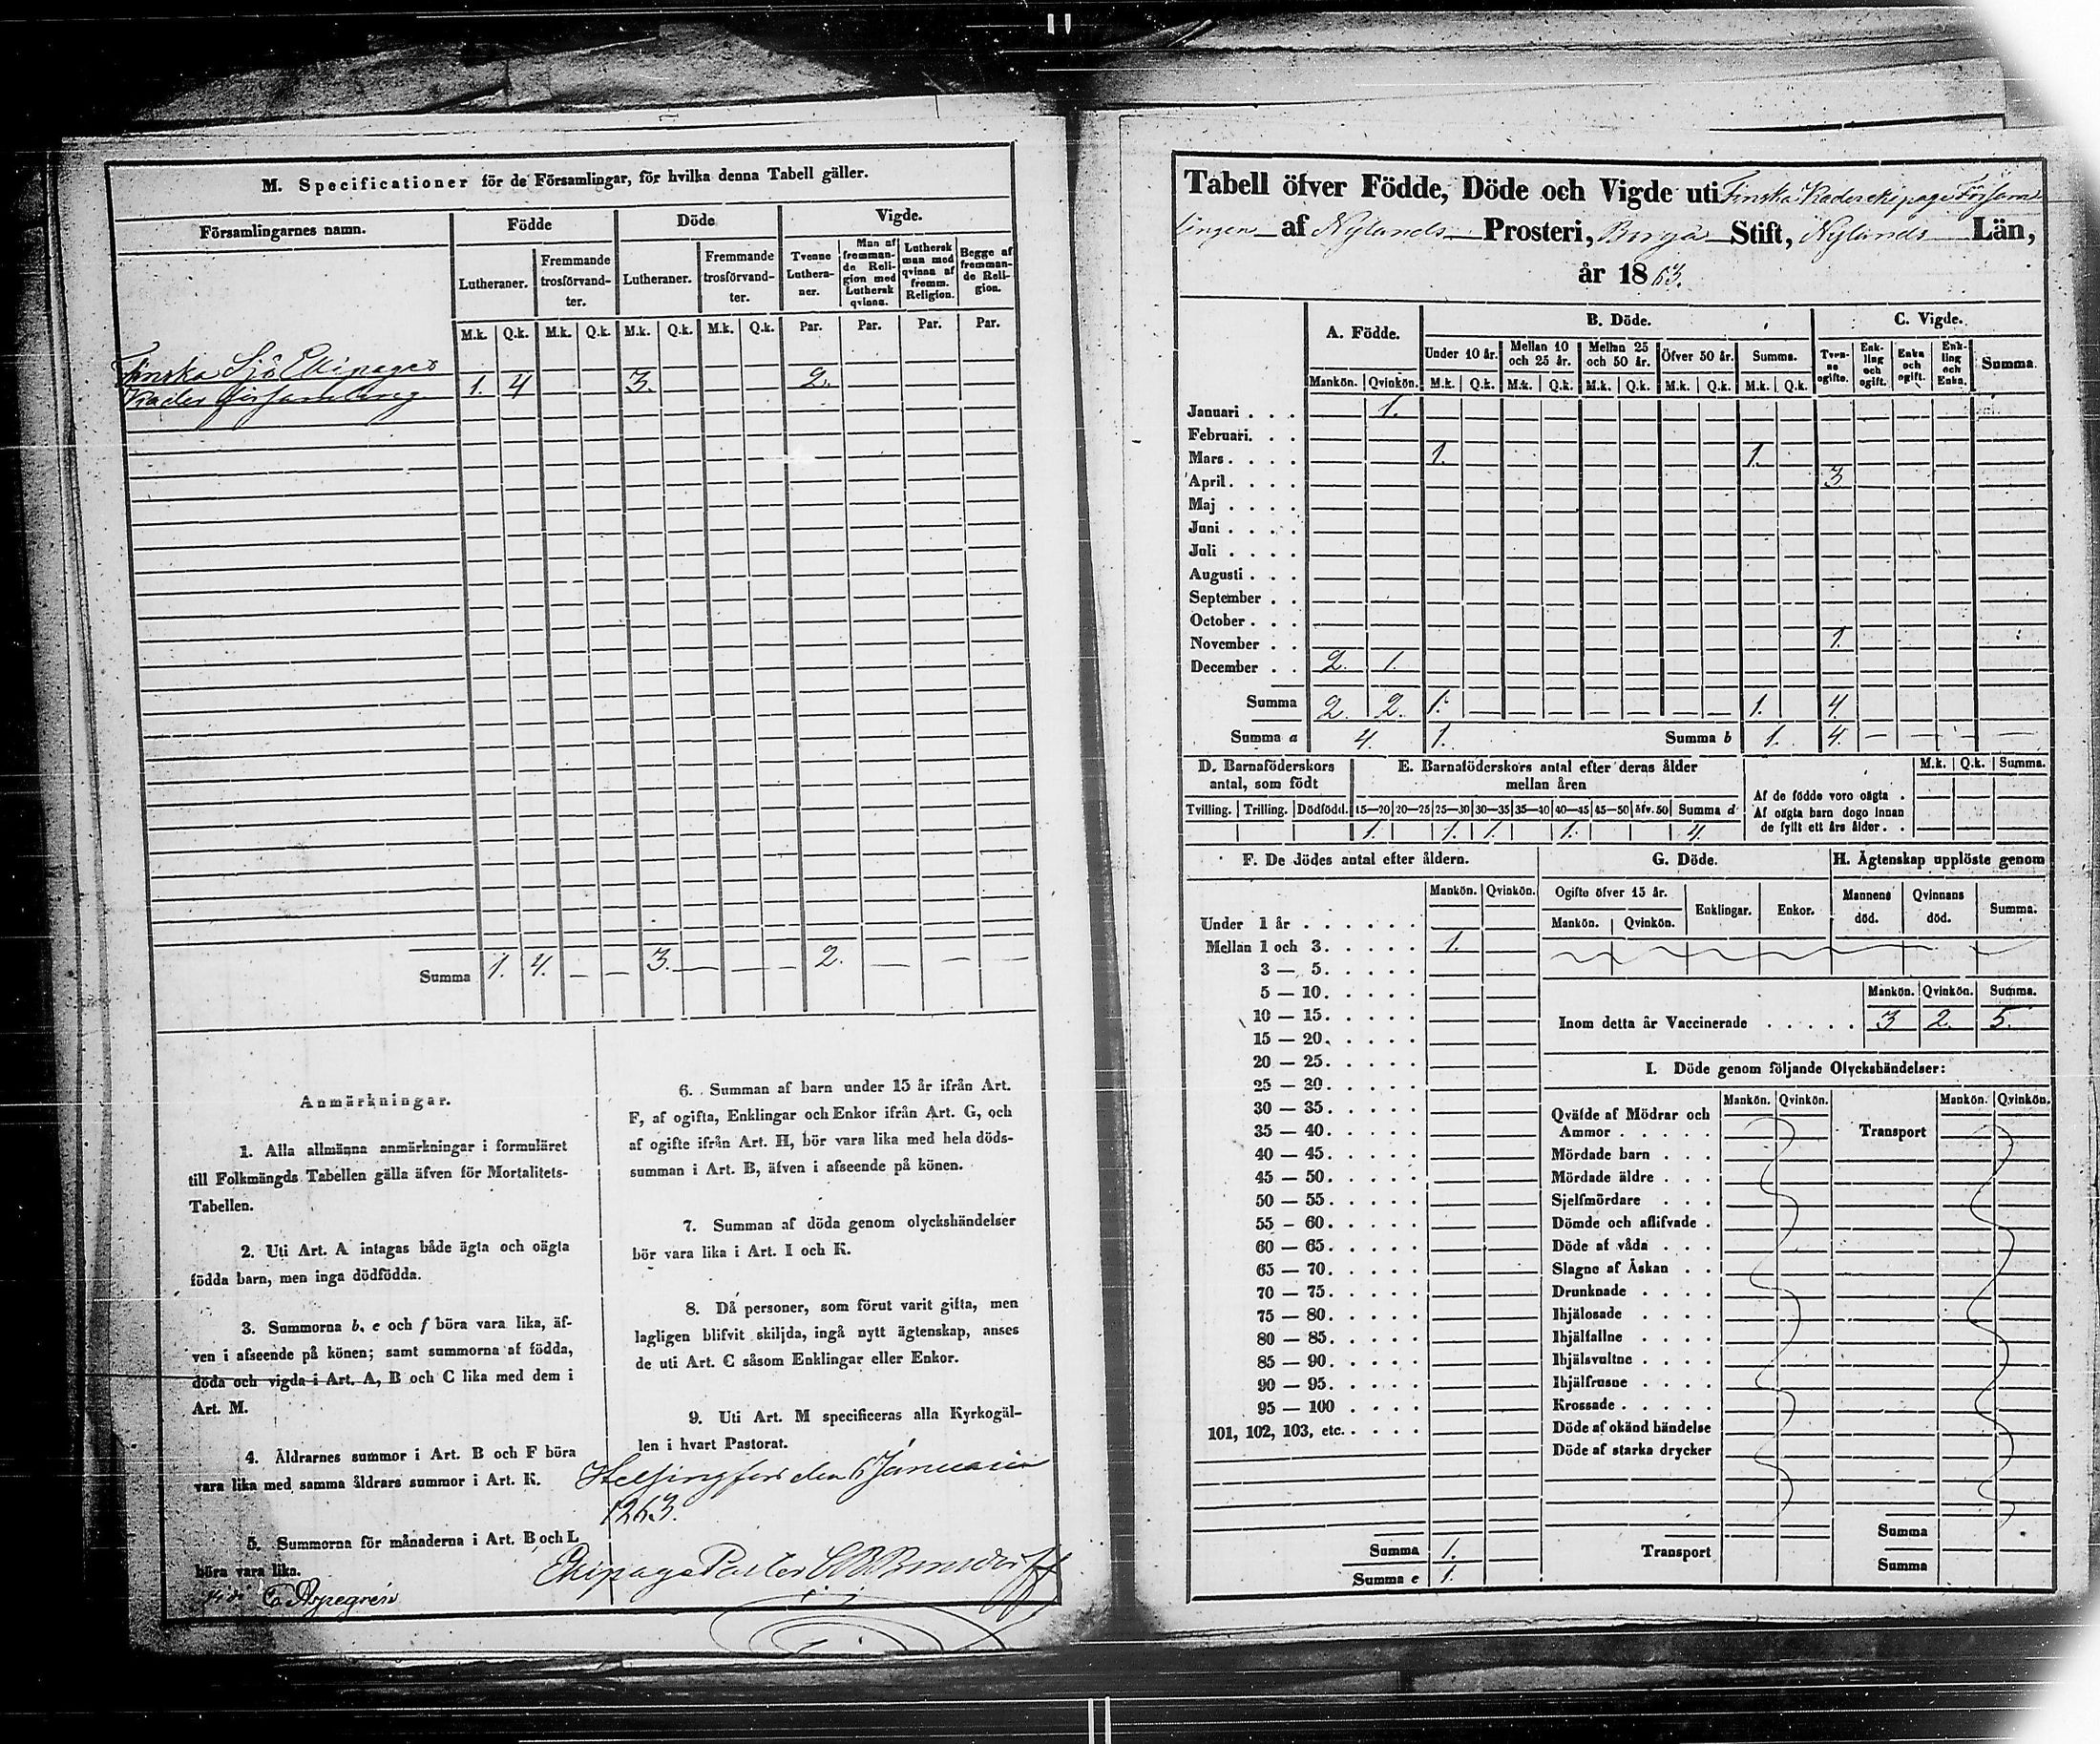 M. Specificationer för de Församlingar, för hvilka denna Tabell gäller.
Församlingarnes namn.
Födde
Döde
Vigde.
Lutheraner.
Fremmande trosförvandter.
Lutheraner.
Fremmande trosförvandter.
Tvenne Lutheraner.
Man af fremmande Religion med Luthersk qvinna.
Luthersk man med qvinna af fremm. Religion.
Begge af fremmande Religion.
M.k. Q.k. M.k. Q.k. M.k. Q.k. M.k. Q.k. Par. Par. Par. Par.
Finska Sjö Ekipages
Kader församling 1. 4 3. 2.
Summa 1. 4. — — 3. — — — 2. — — —
Anmärkningar.
1. Alla allmänna anmärkningar i formuläret
till Folkmängds Tabellen gälla äfven för Mortalitets-
Tabellen.
2. Uti Art. A intagas både ägta och oägta
födda barn, men inga dödfödda.
3. Summorna b, e och f böra vara lika, äf-
ven i afseende på könen; samt summorna af födda,
döda och vigda i Art. A, B och C lika med dem i
Art. M.
4. Äldrarnes summor i Art. B och F böra
vara lika med samma åldrars summor i Art. K.
5. Summorna för månaderna i Art. B och L
böra vara lika.
E. Aspegrén
6. Summan af barn under 15 år ifrån Art.
F, af ogifta, Enklingar och Enkor ifrån Art. G, och
af ogifte ifrån Art. H, bör vara lika med hela döds-
summan i Art. B, äfven i afseende på könen.
7. Summan af döda genom olyckshändelser
bör vara lika i Art. I och K.
8. Då personer, som förut varit gifta, men
lagligen blifvit skiljda, ingå nytt ägtenskap, anses
de uti Art. C såsom Enklingar eller Enkor.
9. Uti Art. M specificeras alla Kyrkogäl-
len i hvart Pastorat.
Helsingfors den 6 Januari
1863.
Ekipage Pastor
Tabell öfver Födde, Döde och Vigde uti Finska Kaderekipage Försam
lingen af Nylands Prosteri, Borgå Stift, Nylands Län,
år 1863.
A. Födde.
B. Döde.
C. Vigde.
Under 10 år. Mellan 10 och 25 år. Mellan 25 och 50 år. Öfver 50 år. Summa.
Tvenne ogifte. Enkling och ogift. Enka och ogift. Enkling och Enka. Summa.
Mankön. Qvinkön. M.k. Q.k. M.k. Q.k. M.k. Q.k. M.k. Q.k. M.k. Q.k.
Januari . . . 1.
Februari. . .
Mars . . . . 1. 1.
April . . . . 3
Maj . . . .
Juni . . . .
Juli . . . .
Augusti . . .
September . .
October . . .
November . . 1.
December . . 2. 1.
Summa 2. 2. 1. — — — — — — — 1. 4.
Summa a 4. 1. Summa b 1. 4. — — — —
D. Barnaföderskors antal, som födt
E. Barnaföderskors antal efter deras ålder mellan åren
M.k. Q.k. Summa.
Tvilling. Trilling. Dödfödd. 15—20 20—25 25—30 30—35 35—40 40—45 45—50 öfv. 50 Summa d
1. 1. 1. 1. 4.
Af de födde voro oägta .
Af oägta barn dogo innan
de fyllt ett års ålder . .
F. De dödes antal efter åldern.
Mankön. Qvinkön.
Under 1 år . . . . . .
Mellan 1 och 3 . . . . . 1.
3 — 5. . . . .
5 — 10. . . . .
10 — 15. . . . .
15 — 20. . . . .
20 — 25. . . . .
25 — 30. . . . .
30 — 35. . . . .
35 — 40. . . . .
40 — 45. . . . .
45 — 50. . . . .
50 — 55. . . . .
55 — 60. . . . .
60 — 65. . . . .
65 — 70. . . . .
70 — 75. . . . .
75 — 80. . . . .
80 — 85. . . . .
85 — 90. . . . .
90 — 95. . . . .
95 — 100 . . . .
101, 102, 103, etc. . . . .
Summa 1.
Summa e 1.
G. Döde.
Ogifte öfver 15 år. Enklingar. Enkor.
Mankön. Qvinkön.
H. Ägtenskap upplöste genom
Mannens död. Qvinnans död. Summa.
Mankön. Qvinkön. Summa.
Inom detta år Vaccinerade . . . . . 3 2. 5.
I. Döde genom följande Olyckshändelser:
Mankön. Qvinkön. Mankön. Qvinkön.
Qväfde af Mödrar och
Ammor . . . . . Transport
Mördade barn . . .
Mördade äldre . . .
Sjelfmördare . . .
Dömde och aflifvade .
Döde af våda . . .
Slagne af Åskan . .
Drunknade . . . .
Ihjälosade . . . .
Ihjälfallne . . . .
Ihjälsvultne . . . .
Ihjälfrusne . . . .
Krossade . . . . .
Döde af okänd händelse
Döde af starka drycker
Summa
Transport
Summa